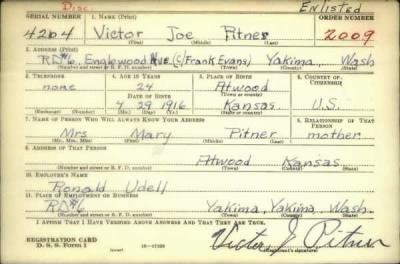 Disc.
Enlisted
SERIAL NUMBER 1. NAME (Print) ORDER NUMBER
4264 Victor Joe Pitner 2009
(First) (Middle) (Last)
2. ADDRESS (Print)
RD#6, Englewood Ave. (c/ Frank Evans) Yakima, Wash
(Number and street or R. F. D. number) (Town) (County) (State)
3. TELEPHONE 4. AGE IN YEARS 5. PLACE OF BIRTH 6. COUNTRY OF CITIZENSHIP
none 24 Atwood
DATE OF BIRTH (Town or county)
4 29 1916 Kansas U.S.
(Exchange) (Number) (Mo.) (Day) (Yr.) (State or country)
7. NAME OF PERSON WHO WILL ALWAYS KNOW YOUR ADDRESS 8. RELATIONSHIP OF THAT PERSON
Mrs Mary Pitner mother
(Mr., Mrs., Miss) (First) (Middle) (Last)
9. ADDRESS OF THAT PERSON
Atwood Kansas
(Number and street or R. F. D. number) (Town) (County) (State)
10. EMPLOYER'S NAME
Ronald Udell
11. PLACE OF EMPLOYMENT OR BUSINESS
RD#6 Yakima, Yakima, Wash.
(Number and street or R. F. D. number) (Town) (County) (State)
I AFFIRM THAT I HAVE VERIFIED ABOVE ANSWERS AND THAT THEY ARE TRUE.
REGISTRATION CARD
D. S. S. Form 1 (over) Victor J Pitner
(Registrant's signature)